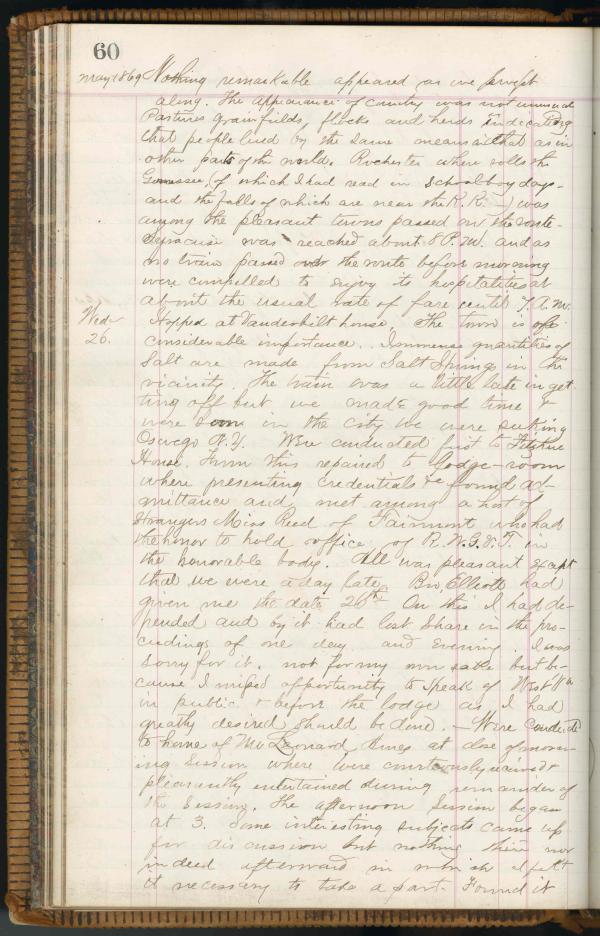 60
May 1869 Nothing remarkable appeared as we swept
along. The appearance of country was not unusual
Pastures grainfields, flocks and herds indicating
that people lived by the same means as that as in
other parts of the world. Rochester where rolls the
Genessee, (of which I had read in schoolboy days-
and the falls of which are near the R.R.—) was
among the pleasant towns passed on the route.
Syracuse was reached about 8 P.M. and as
no train passed over the route before morning
were compelled to enjoy its hospitalities at
about the usual rate of fare until 7. A.M.
Wed- Stopped at Vanderbilt house. The town is of
26. considerable importance. Immense quantities of
Salt are made from Salt Springs in the
vicinity. The train was a little late in get-
ting off but we made good time &
were soon in the city we were seeking
Oswego N.Y. Was conducted first to Fitzhue
House. From this repaired to Lodge-room
where presenting credentials &c found ad-
mittance and met among a host of
strangers Miss Reed of Fairmont who had
the honor to hold office of R.W.G.&.T. in
the honorable body. All was pleasant except
that we were a day late. Bro. Ellicott had
given me the date 26th On this I had de-
pended and by it had lost share in the pro-
ceedings of one day and evening. I was
sorry for it, not for my own sake but be-
cause I missed opportunity to speak of West Va
in public & before the lodge as I had
greatly desired should be done. — Were conducted
to home of Mr Leonard Ames at close of morn-
ing session where were courteously received &
pleasantly entertained during remainder of
the Session. The afternoon session began
at 3. Some interesting subjects came up
for discussion but nothing then nor
indeed afterward in which I felt
it necessary to take a part. Found it